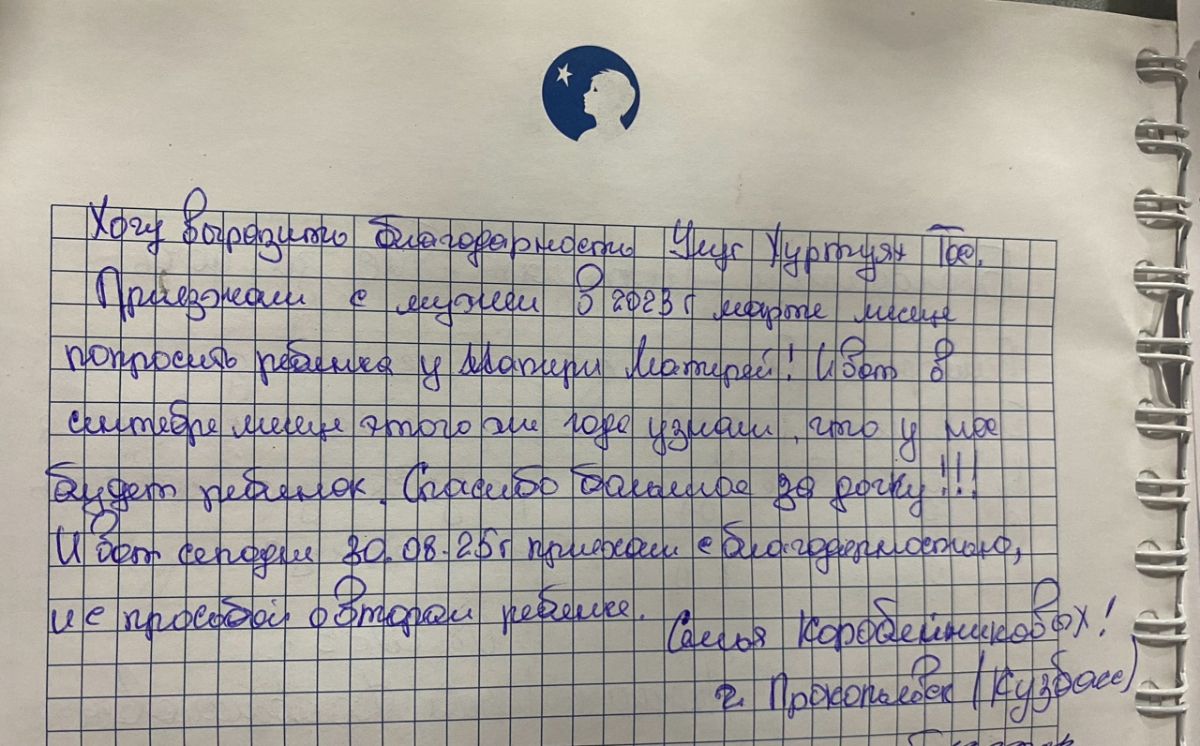 Хочу выразить благодарность Улуг Хуртуях Тас.
Приезжали с мужем в 2023 г марте месяце
попросить ребенка у Матери Матерей! И вот в
сентябре месяце этого же года узнали, что у нас
будет ребенок. Спасибо большое за дочку!!!
И вот сегодня 30.08.25г приехали с благодарностью,
и с просьбой о втором ребенке.
Семья Коробейниковых!
г. Прокопьевск (Кузбасс)